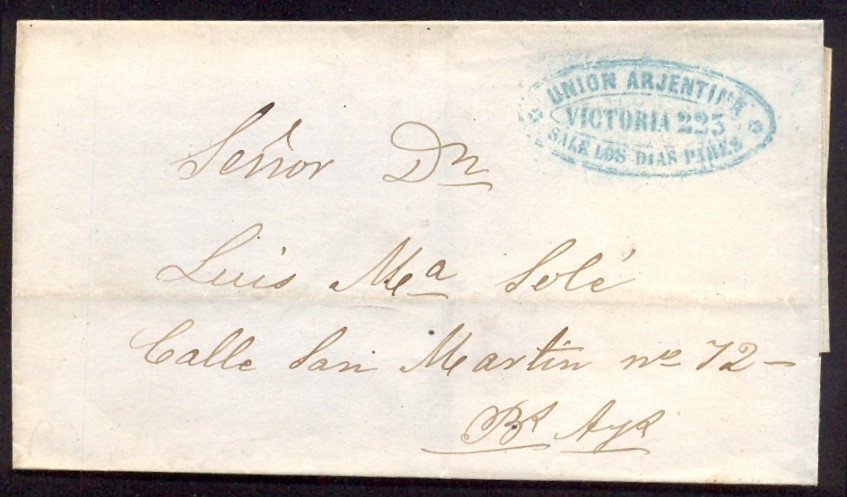 UNION ARJENTINA
VICTORIA 225
SALE LOS DIAS PARES
Señor Dn
Luis Ma Solé
Calle San Martin no 72-
Bs Ays